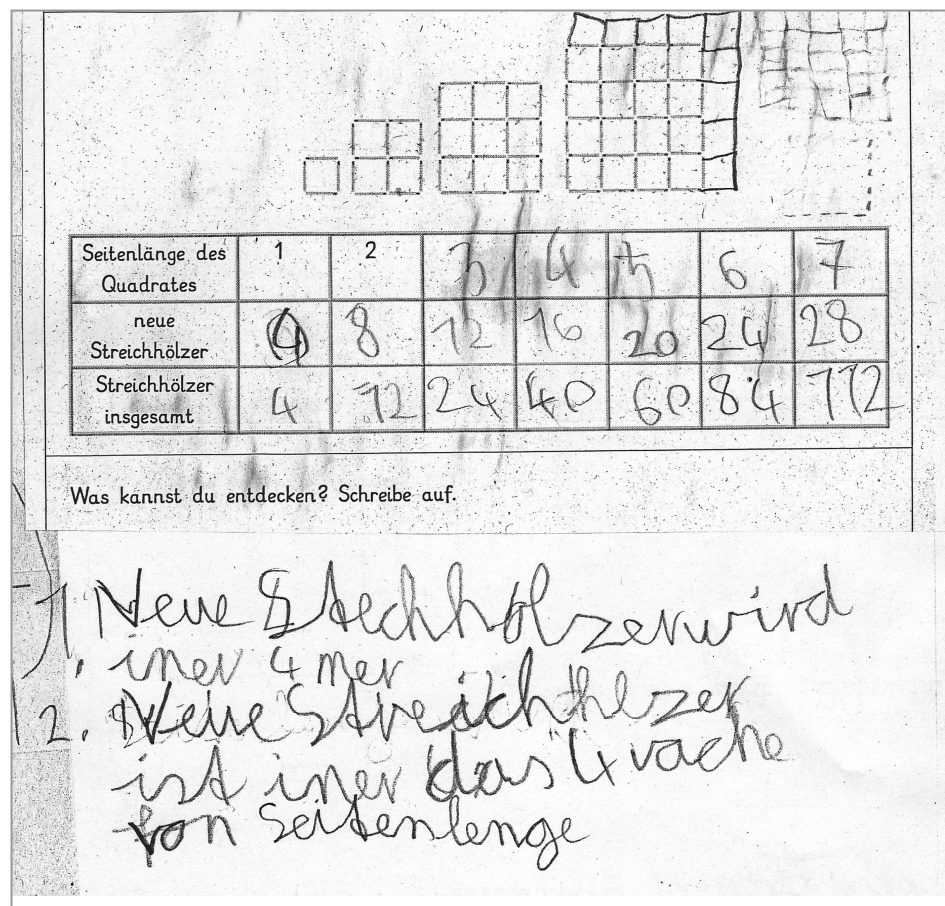 Seitenlänge des Quadrates 1 2 3 4 5 6 7
neue Streichhölzer 4 8 12 16 20 24 28
Streichhölzer insgesamt 4 12 24 40 60 84 112
Was kannst du entdecken? Schreibe auf.
1. Neue Stechhölzer wird
1. iner 4 mer
2. Neue Streichhlzer
ist iner das 4 vache
von Seitenlenge